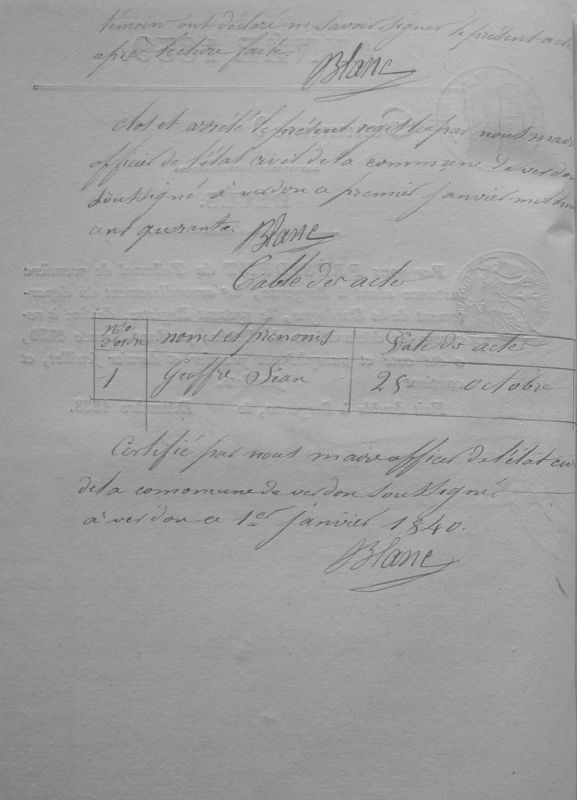 témoin ont déclaré ne savoir signer le présent acte
après lecture faite
Blanc
clos et arrêté le présent registre par nous maire
officier de l'état civil de la commune de verdon
soussigné à verdon ce premier janvier mil huit
cent quarante.
Blanc
Table des actes
no d'ordre noms et prenoms Date des actes
1 Geoffre Jean 25 octobre
Certifié par nous maire officier de l'état civ
de la comomune de verdon soussigné
à verdon ce 1er janvier 1840.
Blanc